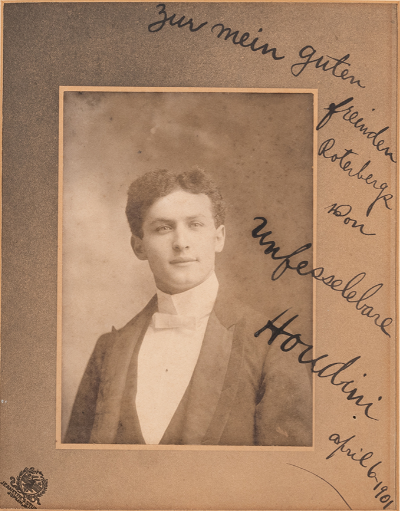 Zur mein guten
freinden
Roterbergs
von
Unfesselebare
Houdini.
april 6 1901